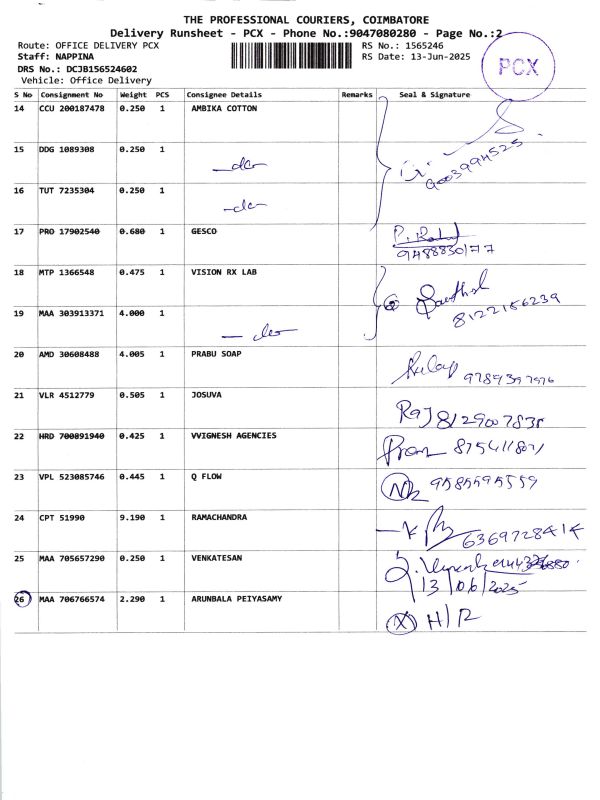 THE PROFESSIONAL COURIERS, COIMBATORE
Delivery Runsheet - PCX - Phone No.:9047080280 - Page No.:2
Route: OFFICE DELIVERY PCX RS No.: 1565246
Staff: NAPPINA RS Date: 13-Jun-2025
DRS No.: DCJB156524602
Vehicle: Office Delivery
PCX
S No Consignment No Weight PCS Consignee Details Remarks Seal & Signature
14 CCU 200187478 0.250 1 AMBIKA COTTON
15 DDG 1089308 0.250 1 -do-
9003994525
16 TUT 7235304 0.250 1 -do-
17 PRO 17902540 0.680 1 GESCO
9488830177
18 MTP 1366548 0.475 1 VISION RX LAB
8122156239
19 MAA 303913371 4.000 1 -do-
20 AMD 30608488 4.005 1 PRABU SOAP
9789397976
21 VLR 4512779 0.505 1 JOSUVA
Raj
22 HRD 700891940 0.425 1 VVIGNESH AGENCIES
23 VPL 523085746 0.445 1 Q FLOW
9585595559
24 CPT 51990 9.190 1 RAMACHANDRA
6369728414
25 MAA 705657290 0.250 1 VENKATESAN
13/06/2025
26 MAA 706766574 2.290 1 ARUNBALA PEIYASAMY